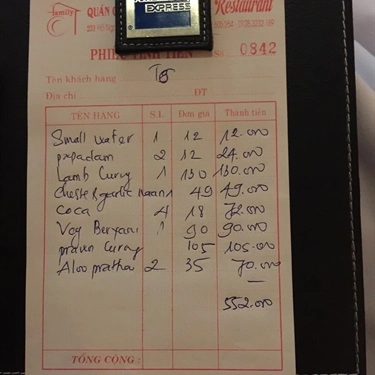 EXPRESS
family
QUÁN Restaurant
PHIẾU TÍNH TIỀN 0342
Tên khách hàng T5
Địa chỉ ĐT
TÊN HÀNG S.L Đơn giá Thành tiền
Small water 1 12 12.000
papadam 2 12 24.000
Lamb Curry 1 130 130.000
Cheste & garlic naan 1 49 49.000
Coca 4 18 72.000
Veg Beryani 1 90 90.000
prawn Curry 105 105.000
Aloo pratha 2 35 70.000
552.000
TỔNG CỘNG :